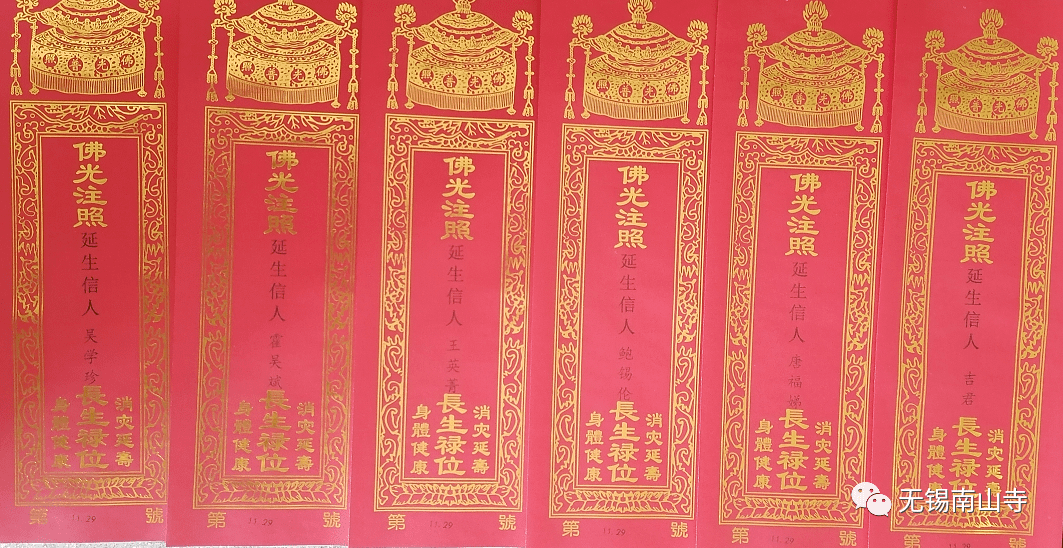 佛光普照
佛光注照
延生信人
吴学珍
長生禄位
消灾延壽
身體健康
第 11.29 號
佛光普照
佛光注照
延生信人
霍吴斌
長生禄位
消灾延壽
身體健康
第 11.29 號
佛光普照
佛光注照
延生信人
王英菁
長生禄位
消灾延壽
身體健康
第 11.29 號
佛光普照
佛光注照
延生信人
鲍锡伦
長生禄位
消灾延壽
身體健康
第 11.29 號
佛光普照
佛光注照
延生信人
唐福娣
長生禄位
消灾延壽
身體健康
第 11.29 號
佛光普照
佛光注照
延生信人
吉君
長生禄位
消灾延壽
身體健康
第 11.29 號
无锡南山寺